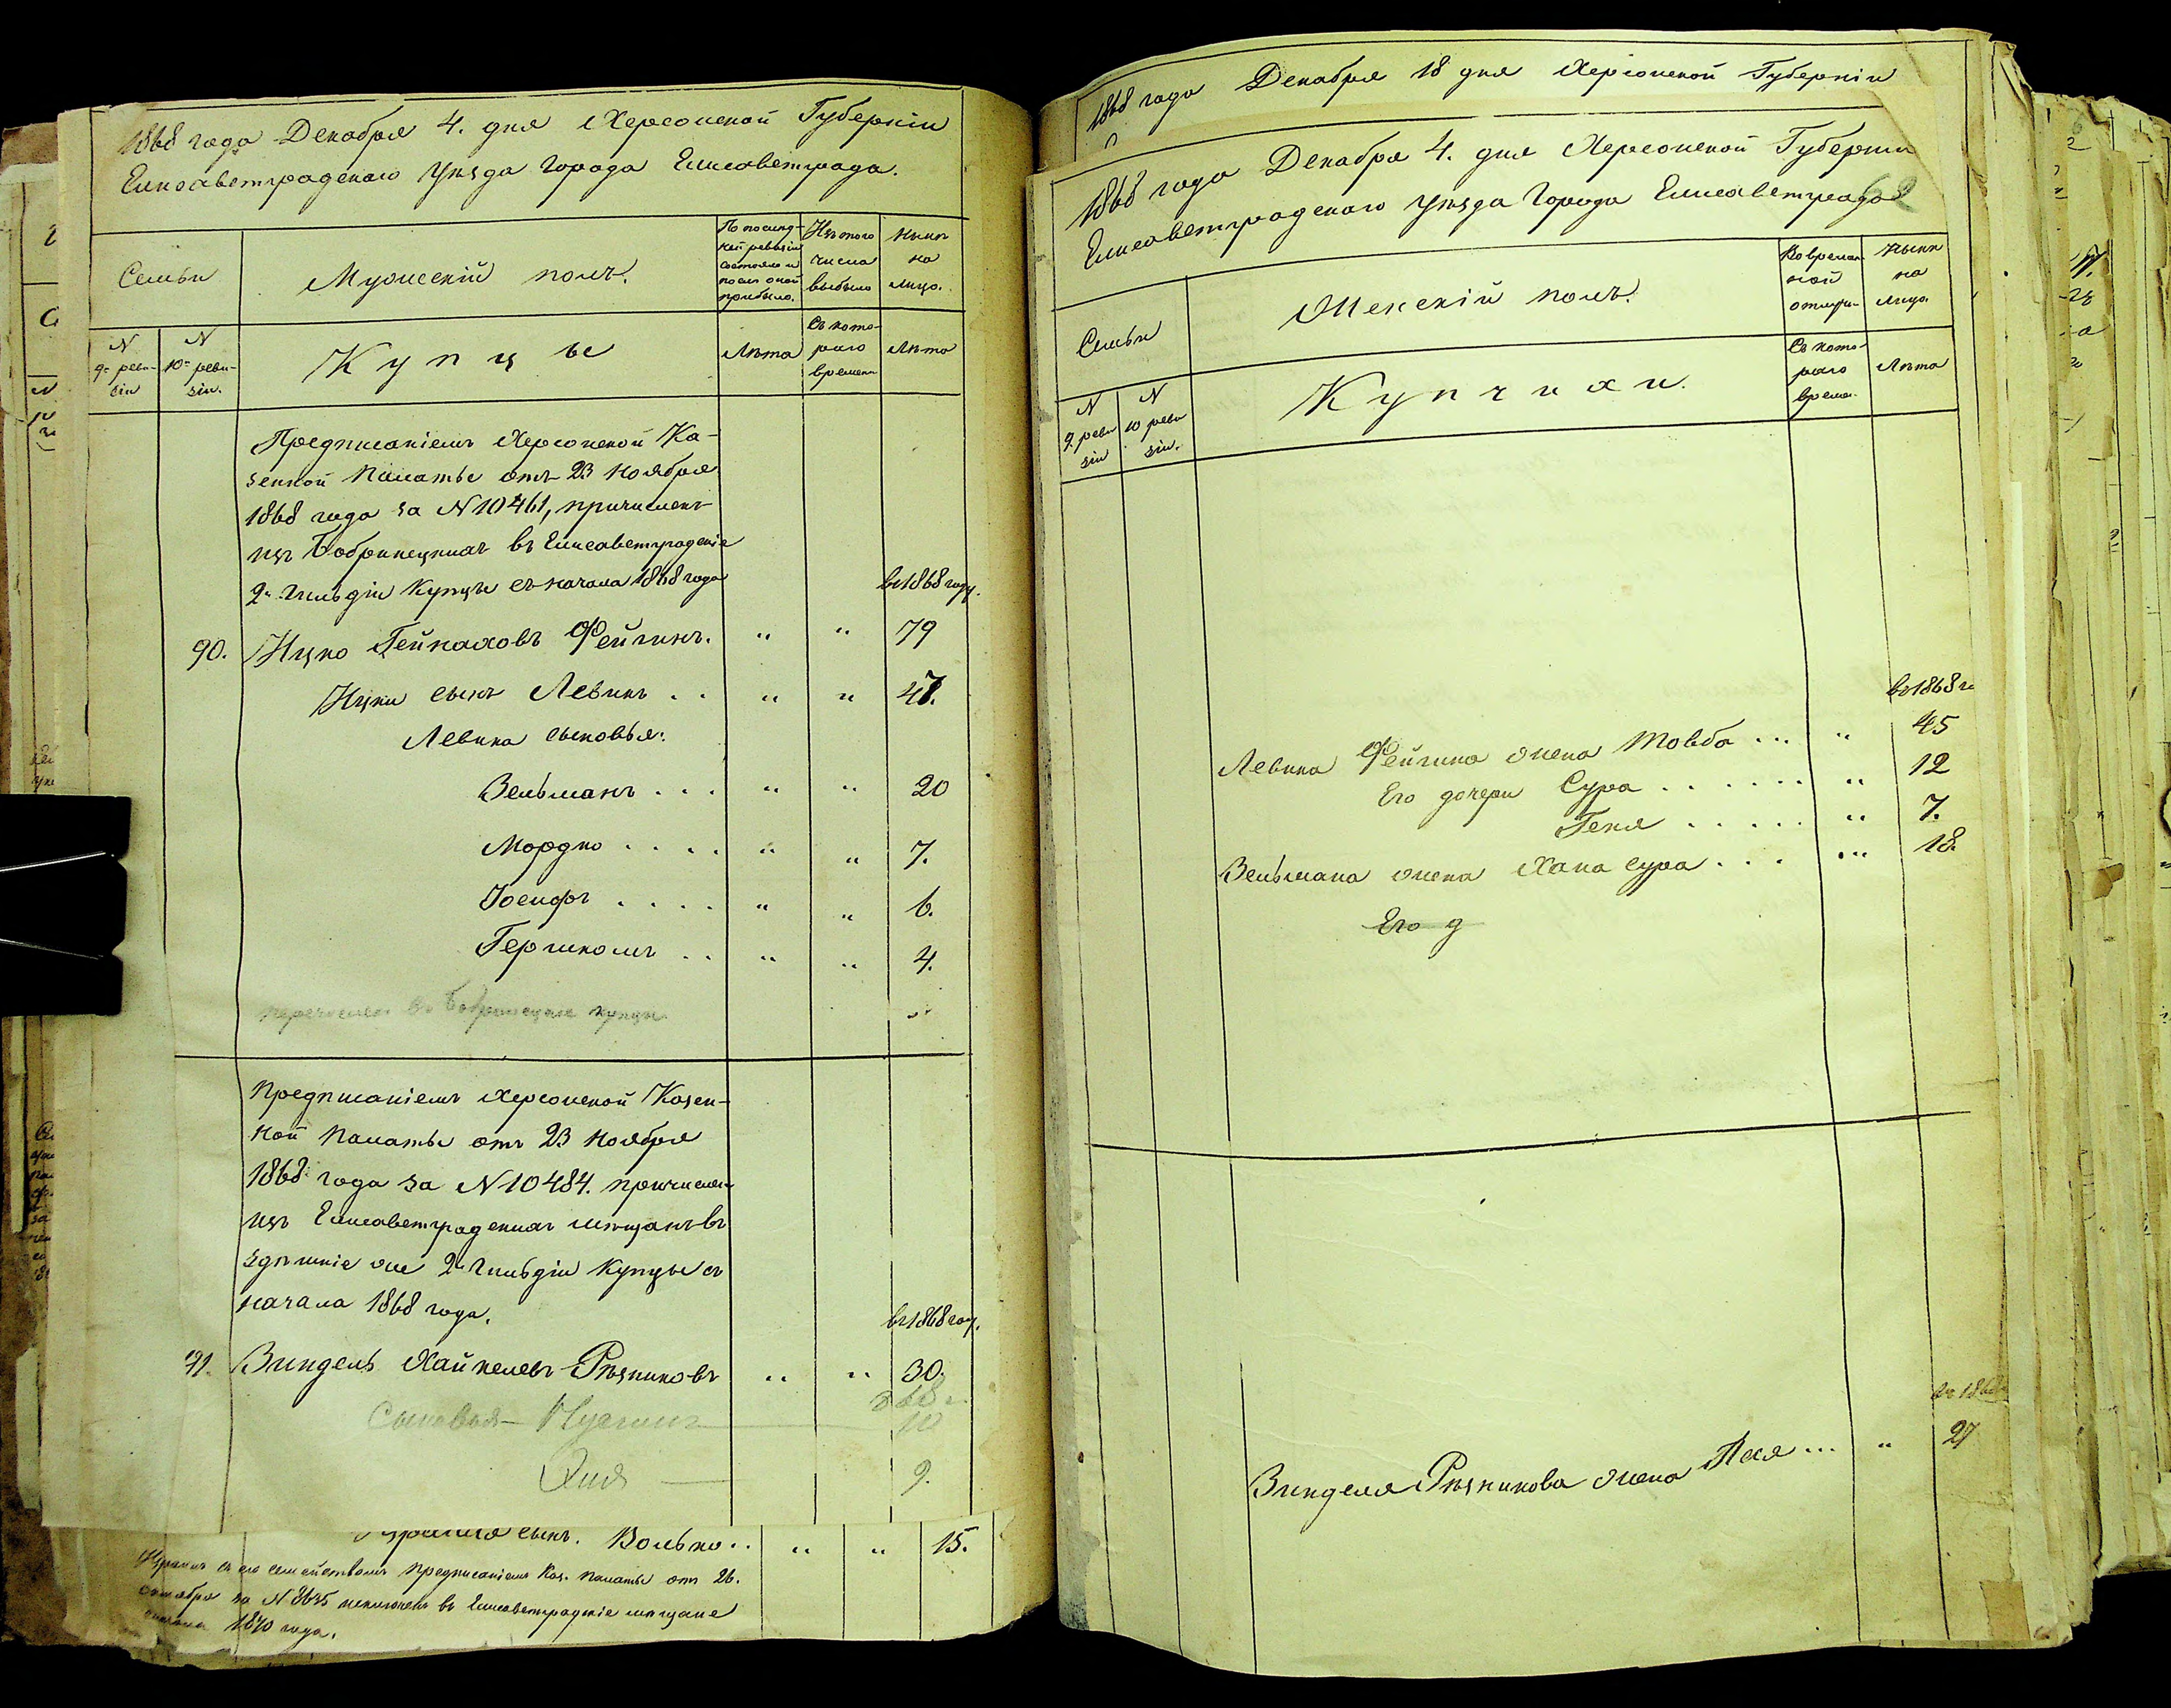 1868 года Декабря 4. дня Херсонской Губерніи
Елисаветградскаго Уѣзда Города Елисаветграда.
Семьи
Мужескій полъ.
По послед-
ней ревизіи
состояло и
после оной
прибыло.
Изъ того
числа
выбыло
Нынѣ
на
лицо.
N
9й реви-
зіи
N
10й реви-
зіи.
Купцы
Лѣта
Съ кото-
раго
времени
Лѣта
Предписаніемъ Херсонской Ка-
зенной Палаты отъ 23 Ноября
1868 года за N 10461, причислены
изъ Бобринецкихъ въ Елисаветградскіе
2й Гильдіи Купцы съ начала 1868 года
въ 1868 году.
90. Ицко Гейнаховъ Фейгинъ. " " 79
Ицки сынъ Левикъ . . " " 47.
Левика сыновья:
Зельманъ . . . " " 20
Мордко . . . . " " 7.
Іосифъ . . . . " " 6.
Гершкомъ . . " " 4.
перечислен въ Бобринецкие купцы
Предписаніемъ Херсонской Казен-
ной Палаты отъ 23 Ноября
1868 года за N 10484. причислен
изъ Елисаветградскихъ мѣщанъ въ
здѣшніе же 2й Гильдіи Купцы съ
начала 1868 года.
въ 1868 году.
91. Зиндель Хайкелевъ Рѣзниковъ " " 30.
868 г.
Сыновья — 10
9.
сынъ. Волько . . " " 15.
съ его семействомъ Предписаніемъ Каз. Палаты отъ 26.
за N 8635 исключенъ въ Елисаветградскіе мѣщане
1870 года.
1868 года Декабря 18 дня Херсонской Губерніи
1868 года Декабря 4. дня Херсонской Губерніи
Елисаветградскаго Уѣзда Города Елисаветграда
62
Семьи
Женскій полъ.
Во времен-
ной
отлуч-
Нынѣ
на
лицо.
N
9. реви
зіи
N
10 реви
зіи.
Купчихи.
Съ кото-
раго
време-
Лѣта
въ 1868 г.
Левика Фейгина жена Товба . . . " 45
Его дочери Сура . . . . . . " 12
Геня . . . . . " 7.
Зельмана жена Хана Сура . . . " 18.
Его д
въ 1868
Зинделя Рѣзникова жена Песя . . . " 27